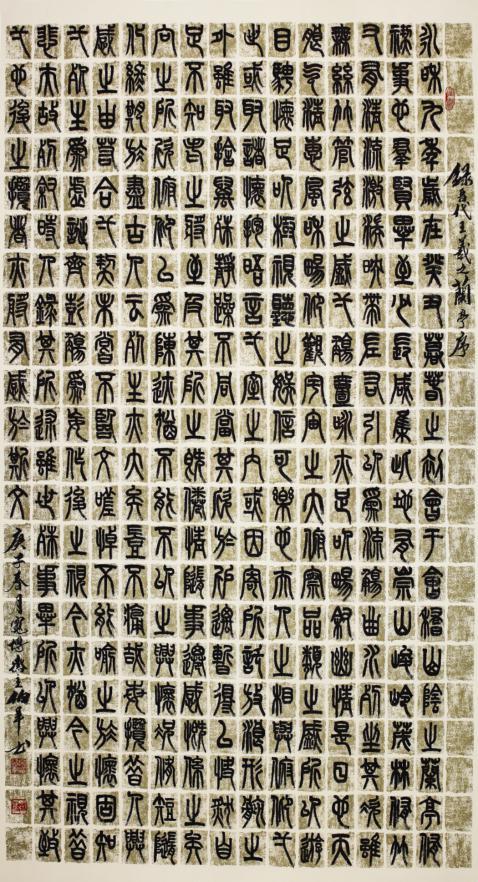 錄古代王羲之蘭亭序
永和九年歲在癸丑暮春之初會于會稽山陰之蘭亭脩
禊事也羣賢畢至少長咸集此地有崇山峻嶺茂林脩竹
又有清流激湍映帶左右引以為流觴曲水列坐其次雖
無絲竹管弦之盛一觴一詠亦足以暢敘幽情是日也天
朗氣清惠風和暢仰觀宇宙之大俯察品類之盛所以遊
目騁懷足以極視聽之娛信可樂也夫人之相與俯仰一
世或取諸懷抱晤言一室之內或因寄所託放浪形骸之
外雖取捨萬殊靜躁不同當其欣於所遇暫得己快然自
足不知老之將至及其所之既倦情隨事遷感慨係之矣
向之所欣俯仰已為陳迹猶不能不以之興懷況脩短隨
化終期於盡古人云死生亦大矣豈不痛哉每攬昔人興
感之由若合一契未嘗不臨文嗟悼不能喻之於懷固知
一死生為虛誕齊彭殤為妄作後之視今亦猶今之視昔
悲夫故列敘時人錄其所述雖世殊事異所以興懷其致
一也後之攬者亦將有感於斯文
庚子春月